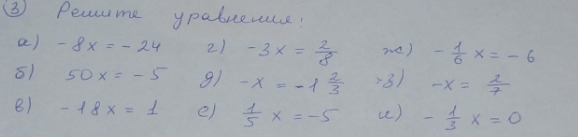 ③ Решите уравнения:
а) -8x = -24 г) -3x = 2/8 ж) -1/6 x = -6
б) 50x = -5 д) -x = -1 2/3 з) -x = 2/7
в) -18x = 1 е) 1/5 x = -5 и) -1/3 x = 0